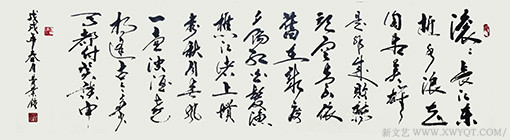 滚滚长江东
逝水浪花
淘尽英雄
是非成败转
头空青山依
旧在几度
夕阳红白发渔
樵江渚上惯
看秋月春风
一壶浊酒喜
相逢古今多少
事都付笑谈中
戊戌年春月
新文艺 WWW.XWYQT.COM